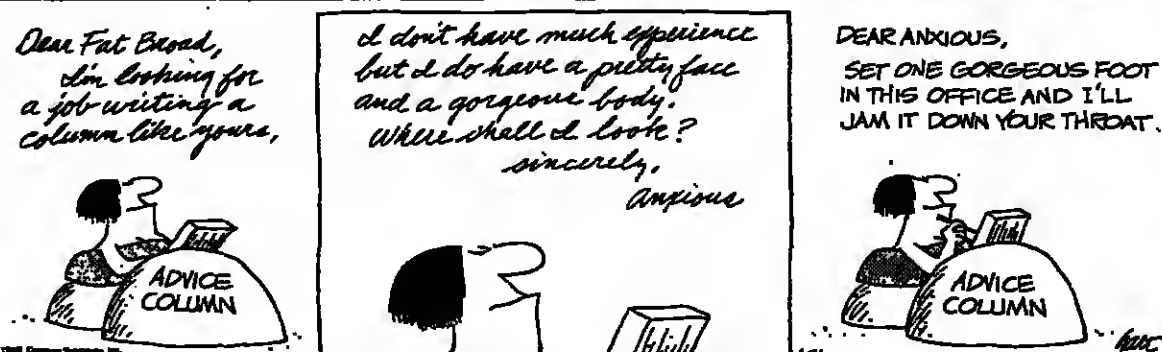 Dear Fat Broad,
I'm looking for
a job writing a
column like yours,
ADVICE
COLUMN
I don't have much experience
but I do have a pretty face
and a gorgeous body.
Where shall I look?
sincerely,
Anxious
DEAR ANXIOUS,
SET ONE GORGEOUS FOOT
IN THIS OFFICE AND I'LL
JAM IT DOWN YOUR THROAT.
ADVICE
COLUMN
hart